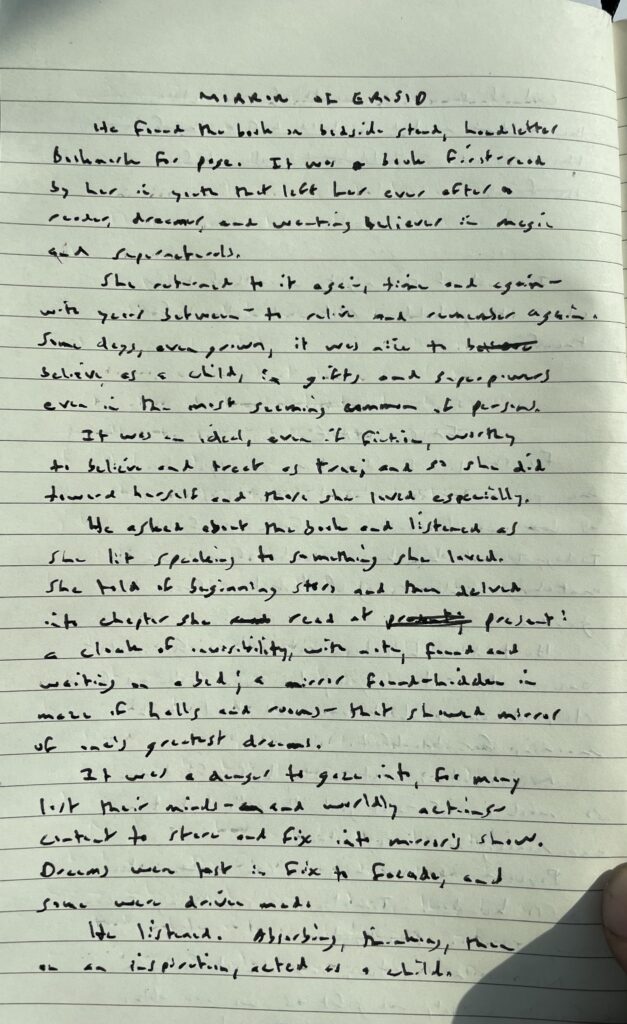 MIRROR OF ERISID
He found the book on bedside stand, handletter
bookmark for page. It was a book first-read
by her in youth that left her ever after a
reader, dreamer, and wanting believer in magic
and supernaturals.
She returned to it again, time and again-
with years between- to relive and remember again.
Some days, even grown, it was nice to
believe as a child, in gifts and superpowers
even in the most seeming common of persons.
It was an ideal, even if fiction, worthy
to believe and treat as true; and so she did
toward herself and those she loved especially.
He asked about the book and listened as
she lit speaking to something she loved.
She told of beginning story and then delved
into chapter she read at present:
a cloak of invisibility, with note, found and
waiting on a bed; a mirror found-hidden in
maze of halls and rooms- that showed mirror
of one's greatest dreams.
It was a danger to gaze into, for many
lost their minds- and worldly actions-
content to stare and fix into mirror's show.
Dreams were lost in fix to facade, and
some were driven mad.
He listened. Absorbing, thinking, then
on an inspiration, acted as a child.